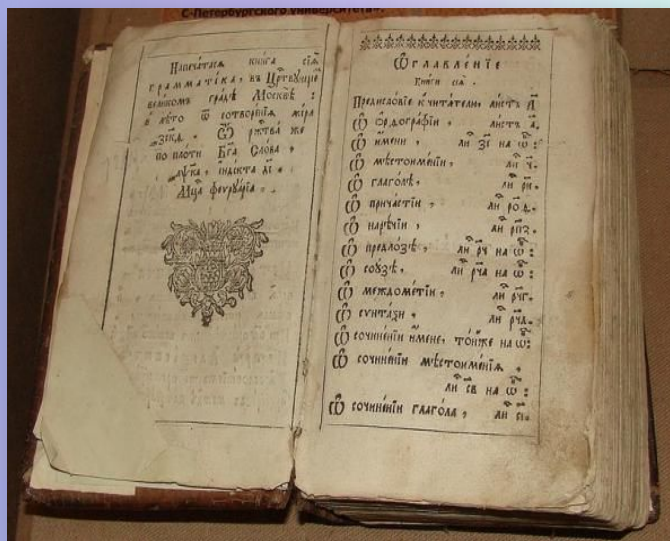 С-Петербургского университета.
Напечатася книга сїѧ
грамматїка, въ Црⷭ҇твꙋющеⷨ
великомъ градѣ Москвѣ :
в̾ лѣто ѿ сотворенїѧ мїра
Ѿ ржⷭ҇тва же
по плоти Бг҃а Слова ,
їндїкта
Мцⷭ҇а феврꙋарїа .
Ѡ҆главле́нїе
Книги сеѧ̀ .
Предисло́вїе к̾ читателю листъ а҃.
Ѡ҆ ѻ҆рѳогра́фїи , листъ а҃.
Ѡ҆ и҆́мени , ли на ѡ҆б :
Ѡ҆ мѣстоиме́нїи , ли ч҃.
Ѡ҆ глаго́лѣ , ли
Ѡ҆ прича́стїи , ли ро҃д.
Ѡ҆ нарѣ́чїи , ли рп҃з.
Ѡ҆ предло́зѣ , ли рч҃ на ѡ҆б :
Ѡ҆ сою́зѣ , ли рч҃а на ѡ҆б :
Ѡ҆ междоме́тїи , ли рч҃г.
Ѡ҆ сѷнта́ѯи , ли рч҃д.
Ѡ҆ сочине́нїи и҆́мене, то́йже на ѡ҆б:
Ѡ҆ сочине́нїи мѣстоиме́нїѧ ,
ли с҃в на ѡ҆б :
Ѡ҆ сочине́нїи глаго́ла , ли с҃і.